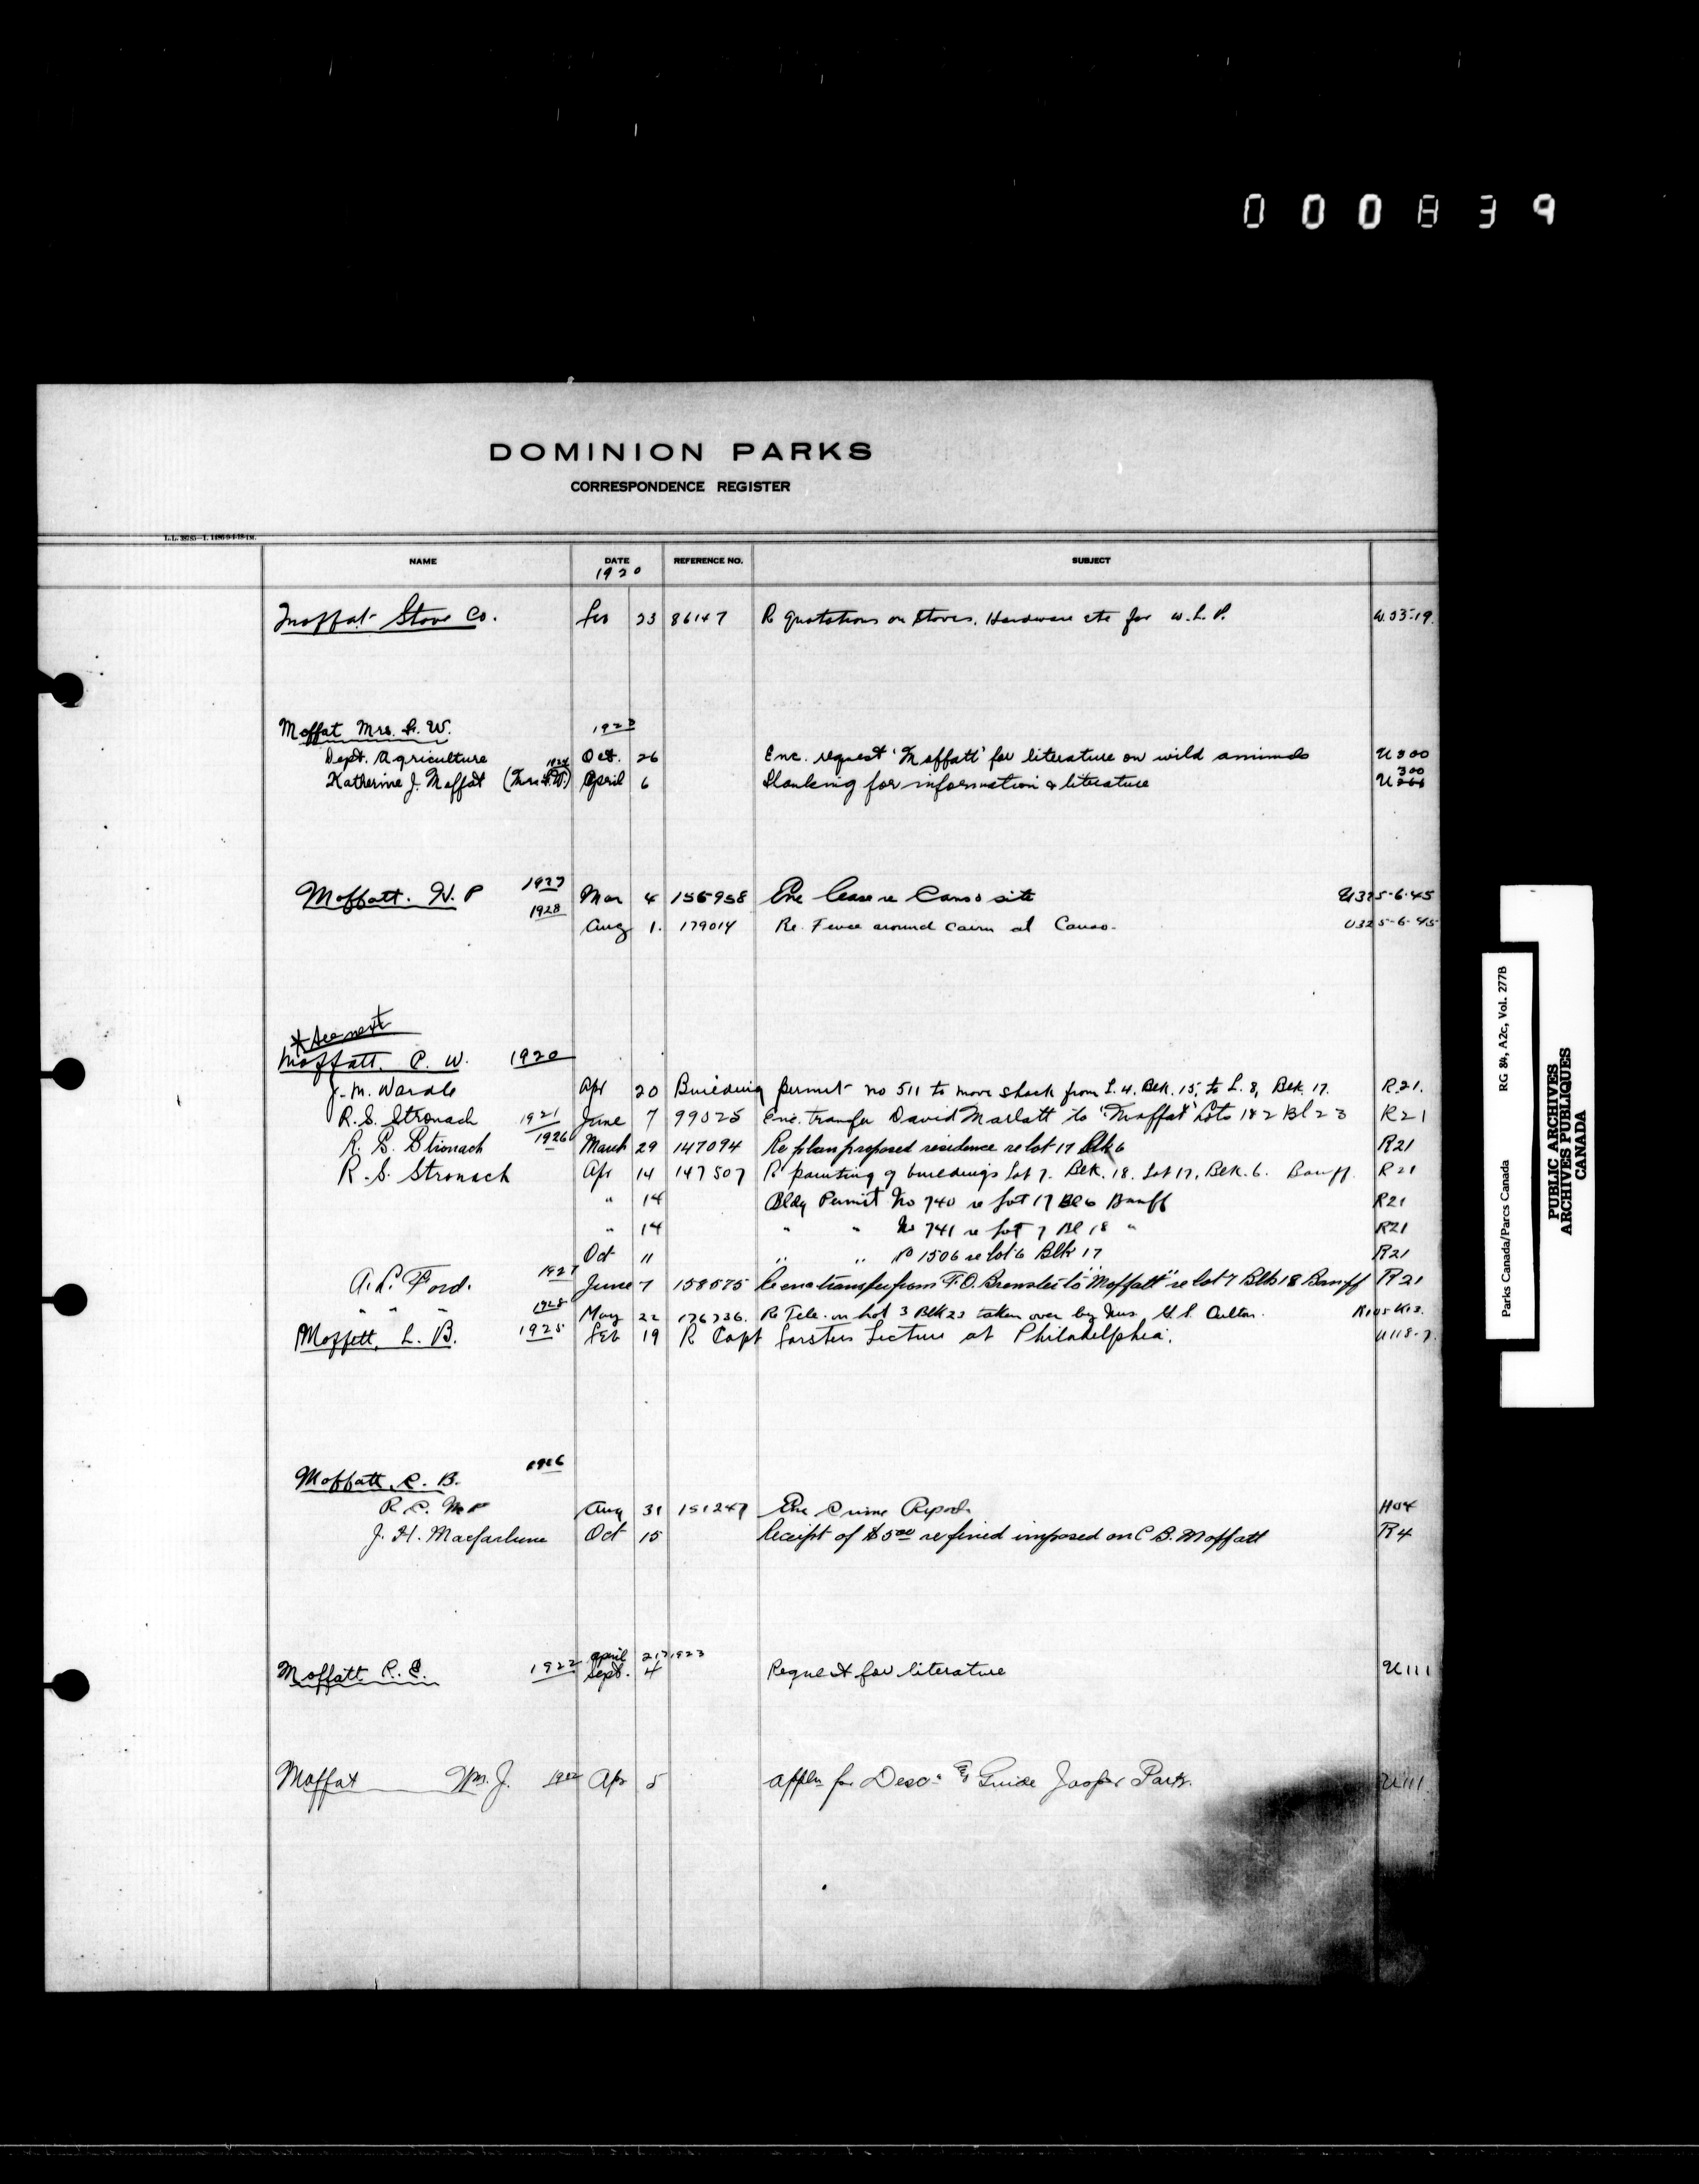 000839
DOMINION PARKS
CORRESPONDENCE REGISTER
NAME DATE REFERENCE NO. SUBJECT
1920
Moffat Stove Co. Feb 23 86147 R quotations on Stoves, Hardware etc for W.L.P. W.35-19.
Moffat Mrs. F. W. 1923
Dept. Agriculture Oct. 26 Enc. request 'Moffatt' for literature on wild animals U300
Katherine J. Moffat (Mrs F.W.) 1924 April 6 Thanking for information & literature U 300
Moffatt. H. P 1927 Mar 4 156958 Enc lease re Canso site U325-6-45
1928 Aug 1. 179014 Re. Fence around cairn at Canso. U325-6-45
* See next
Moffatt. P. W. 1920
J. M. Wardle Apl 20 Building permit no 511 to move shack from L. 4, Blk. 15, to L. 8, Blk 17. R.21.
R.S. Stronach 1921 June 7 99025 Enc. transfer David Marlatt to "Moffat" Lots 1&2 Bl 23 R21
R. S. Stronach 1926 March 29 147094 Re plan proposed residence re lot 17 Blk 6 R21
R. S. Stronach Apr 14 147507 R painting of buildings Lot 7. Blk. 18. Lot 17, Blk. 6. Banff. R21
" 14 Bldg Permit No 740 re Lot 17 Bl 6 Banff R21
" 14 " " No 741 re Lot 7 Bl 18 " R21
Oct 11 " " No 1506 re lot 6 Blk 17 R21
A. L. Ford. 1927 June 7 158575 Re enc transfer from F.O. Brewster to "Moffatt" re lot 7 Blk 18 Banff R21
" " " 1928 May 22 176736. Re Tele. on Lot 3 Blk 23 taken over by Mrs
Moffett, L. B. 1925 Feb 19 R Capt Lecture at Philadelphia. U118-7.
Moffatt, C. B. 1926
R. C. M P Aug 31 151247 Enc Crime Report
J. H. Macfarlane Oct 15 Receipt of $5.00 re fined imposed on C B. Moffatt R4
April 21, 1923
Moffatt R. C. 1922 Sept. 4 Request for literature U111
Moffat Wm. J. Apr 5 appln for Desc. & Guide Jasper Park. U111
Parks Canada/Parcs Canada RG 84, A2c, Vol. 277B
PUBLIC ARCHIVES
ARCHIVES PUBLIQUES
CANADA